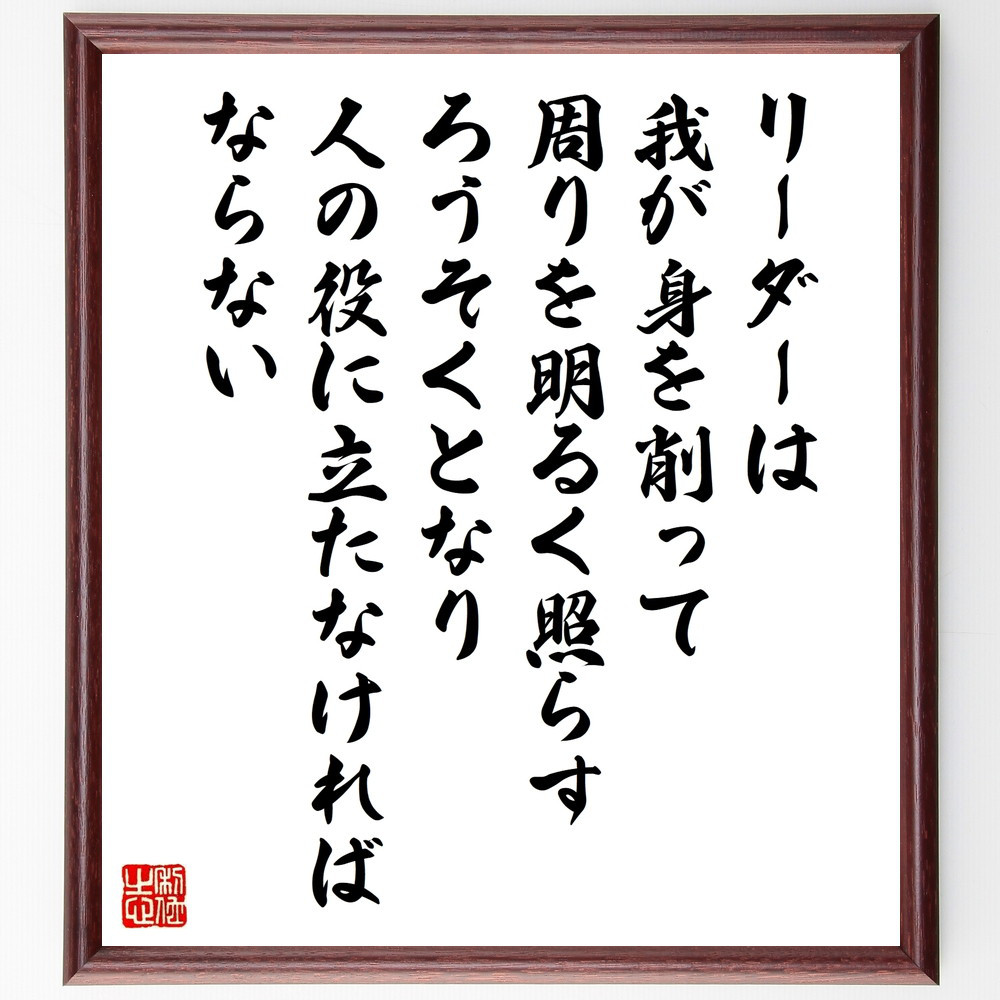 リーダーは
我が身を削って
周りを明るく照らす
ろうそくとなり
人の役に立たなければ
ならない